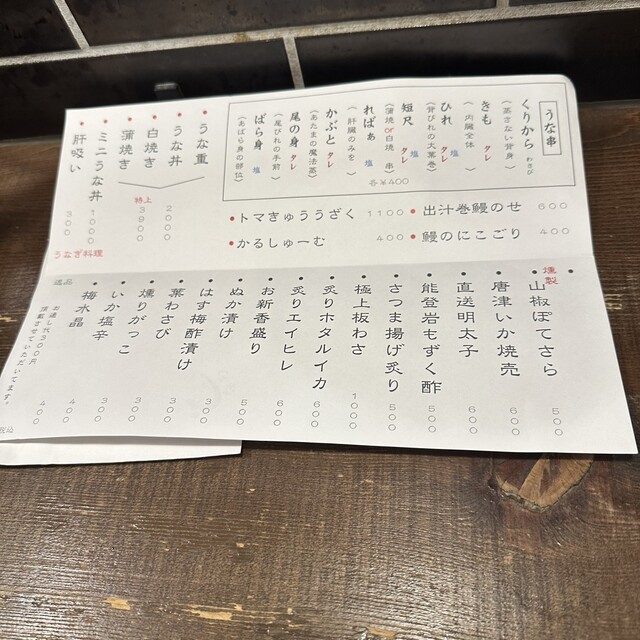 うな串
くりから わさび
(蒸さない背身)
きも タレ
(内臓全体)
ひれ タレ 塩
(背びれの大葉巻)
短尺 タレ 塩
(蒲焼or白焼 串)
ればぁ 塩
(肝臓のみを)
かぶと タレ
(あたまの魔法蒸)
尾の身 タレ
(尾びれの手前)
ばら身 塩
(あばら身の部位)
各¥400
うな重
うな丼
白焼き
蒲焼き
ミニうな丼
肝吸い
2000
特上 3900
1000
300
うなぎ料理
トマきゅううざく 1100
出汁巻鰻のせ 600
かるしゅーむ 400
鰻のにこごり 400
燻製
山椒ぽてさら 500
唐津いか焼売 600
直送明太子 600
能登岩もずく酢 500
さつま揚げ炙り 500
極上板わさ 1000
炙りホタルイカ 600
炙りエイヒレ 600
お新香盛り 600
ぬか漬け 500
はす梅酢漬け 300
葉わさび 300
燻りがっこ 300
いか塩辛 300
梅水晶 400
逸品
お通し代300円
頂戴させていただいてます。
400
税込